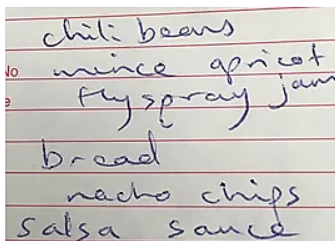 chili beans
No mince apricot
flyspray jam
bread
nacho chips
salsa sauce